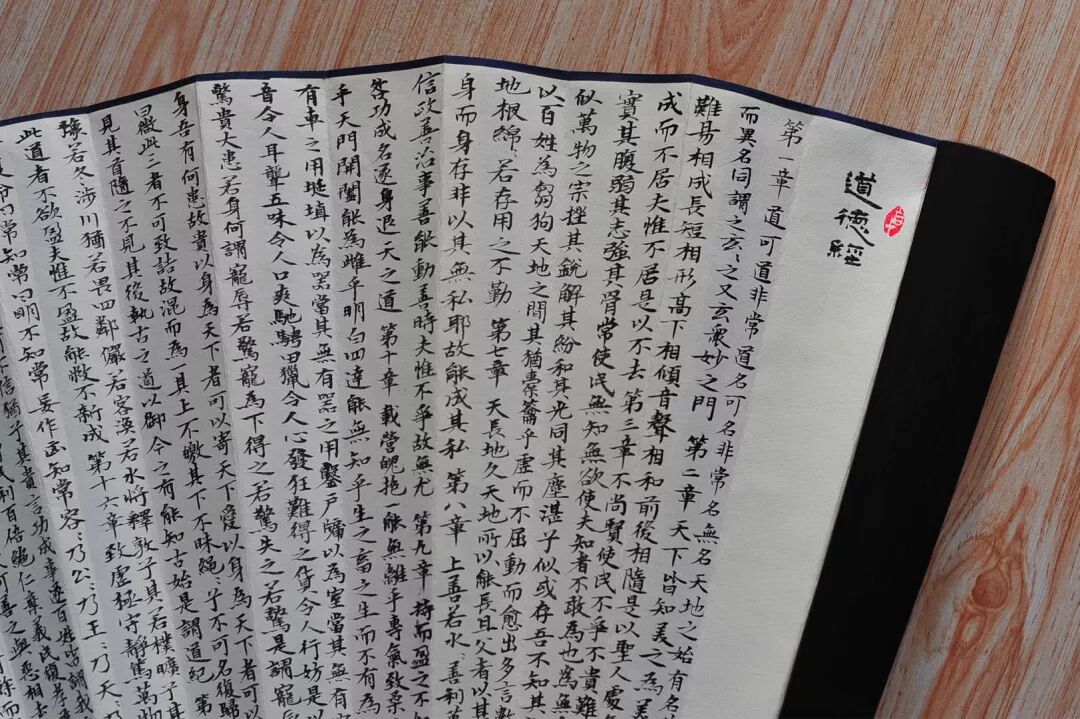 道德經
第一章 道可道非常道名可名非常名無名天地之始有名
而異名同謂之玄〻之又玄衆妙之門 第二章 天下皆知美之為美
難易相成長短相形高下相傾音聲相和前後相隨是以聖人處無
成而不居夫惟不居是以不去 第三章 不尚賢使民不爭不貴難
實其腹弱其志強其骨常使民無知無欲使夫知者不敢為也為無
似萬物之宗挫其銳解其紛和其光同其塵湛乎似或存吾不知其
以百姓為芻狗天地之間其猶橐籥乎虛而不屈動而愈出多言數
地根綿〻若存用之不勤 第七章 天長地久天地所以能長且久者以其
身而身存非以其無私耶故能成其私 第八章 上善若水〻善利萬
信政善治事善能動善時夫惟不爭故無尤 第九章 持而盈之不
咎功成名遂身退天之道 第十章 載營魄抱一能無離乎專氣致柔
乎天門開闔能為雌乎明白四達能無知乎生之畜之生而不有為
有車之用埏埴以為器當其無有器之用鑿戶牖以為室當其無有室
音令人耳聾五味令人口爽馳騁田獵令人心發狂難得之貨令人行妨是以
驚貴大患若身何謂寵辱若驚寵為下得之若驚失之若驚是謂寵辱
身吾有何患故貴以身為天下者可以寄天下愛以身為天下者可以
曰微此三者不可致詰故混而為一其上不皦其下不昧繩〻乎不可名復歸
見其首隨之不見其後執古之道以御今之有能知古始是謂道紀 第
豫若冬涉川猶若畏四鄰儼若客渙若冰將釋敦乎其若樸曠乎其
此道者不欲盈夫惟不盈故能敝不新成 第十六章 致虛極守靜篤萬物
復命曰常知常曰明不知常妄作凶知常容〻乃公〻乃王〻乃天〻乃
信猶乎其貴言功成事遂百姓皆謂我
民利百倍絕仁棄義民復孝
善之與惡相去